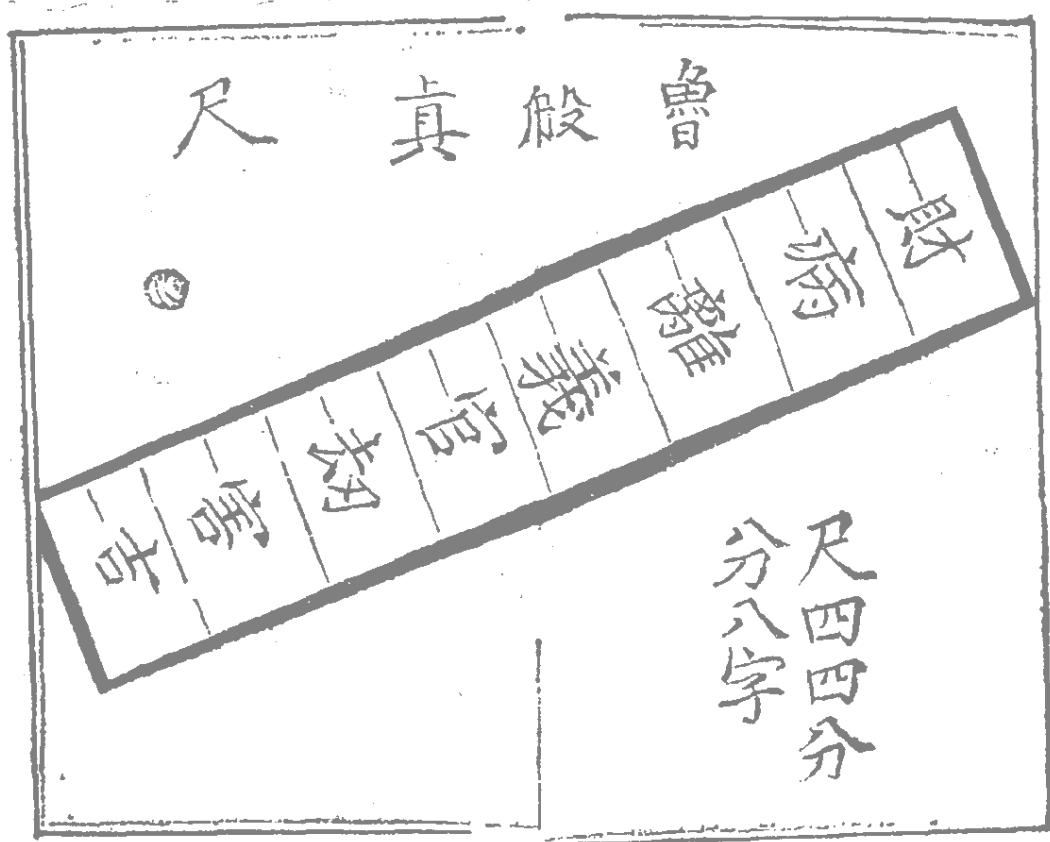 魯般真尺
財病離義官刧害吉
尺四四分
分八字